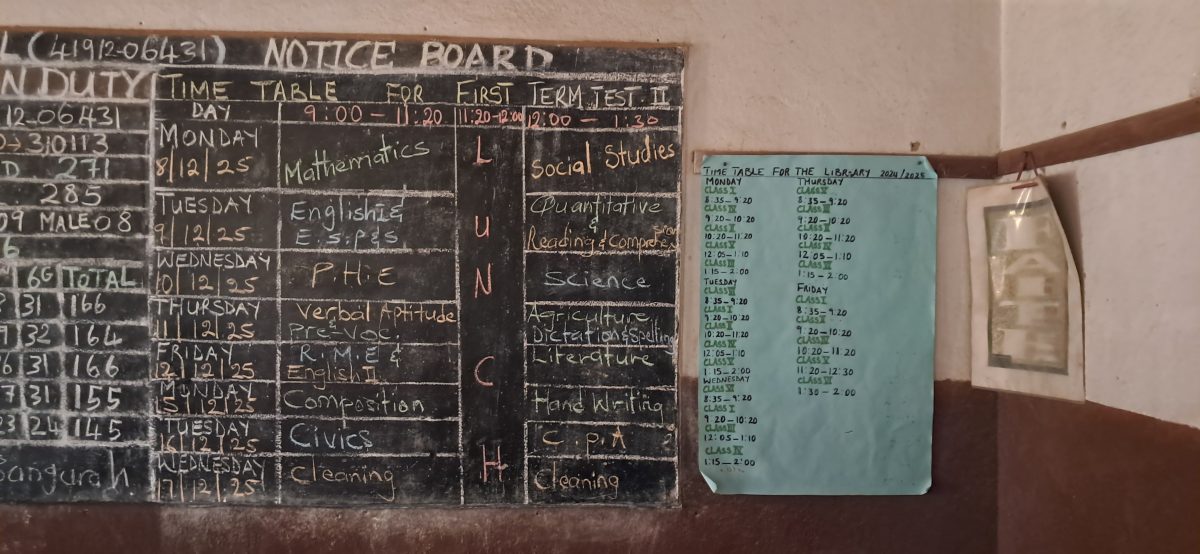 L (41912-06431) NOTICE BOARD
N DUTY
12-06431
310113
D 271
285
09 MALE 08
6
6G TOTAL
31 166
32 164
31 166
31 155
23 24 145
Bangurah
TIME TABLE FOR FIRST TERM TEST II
DAY 9:00 - 11:20 11:20-12:00 12:00 - 1:30
MONDAY
8/12/25 Mathematics Social Studies
TUESDAY English I & Quantitative
9/12/25 E.S.P & S &
Reading & Comprehension
WEDNESDAY
10/12/25 P.H.E Science
THURSDAY Verbal Aptitude Agriculture
11/12/25 Pre-Voc. Dictation & Spelling
FRIDAY R.M.E & Literature
12/12/25 English II
MONDAY
15/12/25 Composition Hand Writing
TUESDAY
16/12/25 Civics C.P.A
WEDNESDAY
17/12/25 Cleaning Cleaning
L
U
N
C
H
TIME TABLE FOR THE LIBRARY 2024/2025
MONDAY
8:35 - 9:20
9:20 - 10:20
10:20 - 11:20
12:05 - 1:10
1:15 - 2:00
TUESDAY
8:35 - 9:20
9:20 - 10:20
10:20 - 11:20
12:05 - 1:10
1:15 - 2:00
WEDNESDAY
8:35 - 9:20
CLASS I
9:20 - 10:20
12:05 - 1:10
1:15 - 2:00
THURSDAY
8:35 - 9:20
9:20 - 10:20
10:20 - 11:20
12:05 - 1:10
1:15 - 2:00
FRIDAY
CLASS I
8:35 - 9:20
9:20 - 10:20
10:20 - 11:20
11:20 - 12:30
1:30 - 2:00